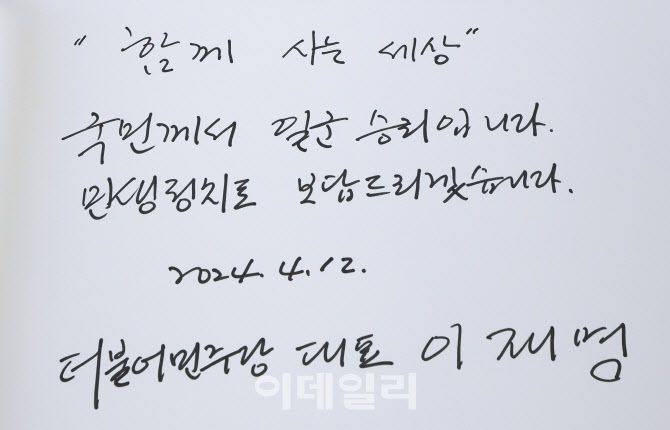 "함께 사는 세상"
국민께서 일군 승리입니다.
민생정치로 보답드리겠습니다.
2024. 4. 12.
더불어민주당 대표 이재명
이데일리